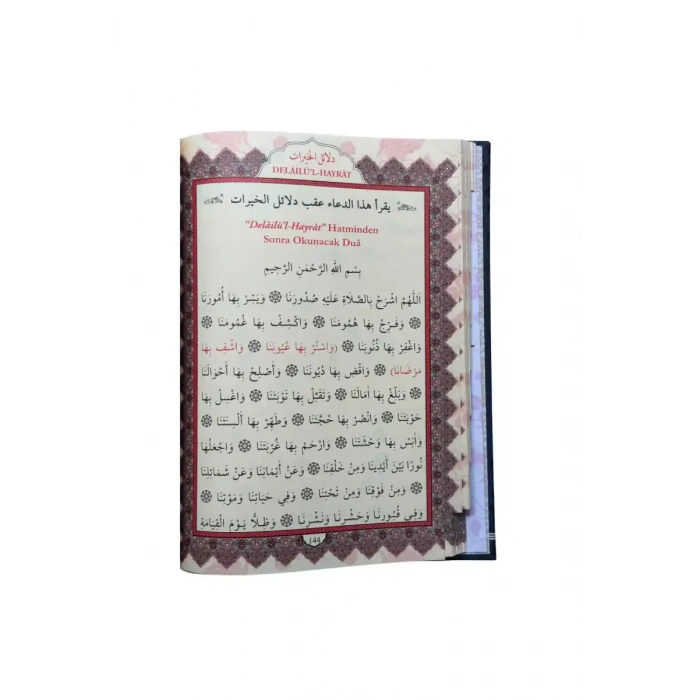 دلائل الخيرات
DELÂİLÜ'L-HAYRÂT
يقرأ هذا الدعاء عقب دلائل الخيرات
"Delâilü'l-Hayrât" Hatminden
Sonra Okunacak Duâ
بِسْمِ اللّٰهِ الرَّحْمٰنِ الرَّحِيمِ
اَللّٰهُمَّ اشْرَحْ بِالصَّلَاةِ عَلَيْهِ صُدُورَنَا ۞ وَيَسِّرْ بِهَا أُمُورَنَا
۞ وَفَرِّجْ بِهَا هُمُومَنَا ۞ وَاكْشِفْ بِهَا غُمُومَنَا ۞
وَاغْفِرْ بِهَا ذُنُوبَنَا ۞ (وَاسْتُرْ بِهَا عُيُوبَنَا ۞ وَاشْفِ بِهَا
مَرْضَانَا) ۞ وَاقْضِ بِهَا دُيُونَنَا ۞ وَأَصْلِحْ بِهَا أَحْوَالَنَا
۞ وَبَلِّغْ بِهَا اٰمَالَنَا ۞ وَتَقَبَّلْ بِهَا تَوْبَتَنَا ۞ وَاغْسِلْ بِهَا
حَوْبَتَنَا ۞ وَانْصُرْ بِهَا حُجَّتَنَا ۞ وَطَهِّرْ بِهَا أَلْسِنَتَنَا ۞
وَاٰنِسْ بِهَا وَحْشَتَنَا ۞ وَارْحَمْ بِهَا غُرْبَتَنَا ۞ وَاجْعَلْهَا
نُورًا بَيْنَ أَيْدِينَا وَمِنْ خَلْفِنَا ۞ وَعَنْ أَيْمَانِنَا وَعَنْ شَمَائِلِنَا
۞ وَمِنْ فَوْقِنَا وَمِنْ تَحْتِنَا ۞ وَفِي حَيَاتِنَا وَمَوْتِنَا ۞
وَفِي قُبُورِنَا وَحَشْرِنَا وَنَشْرِنَا ۞ وَظِلًّا يَوْمَ الْقِيَامَةِ
144